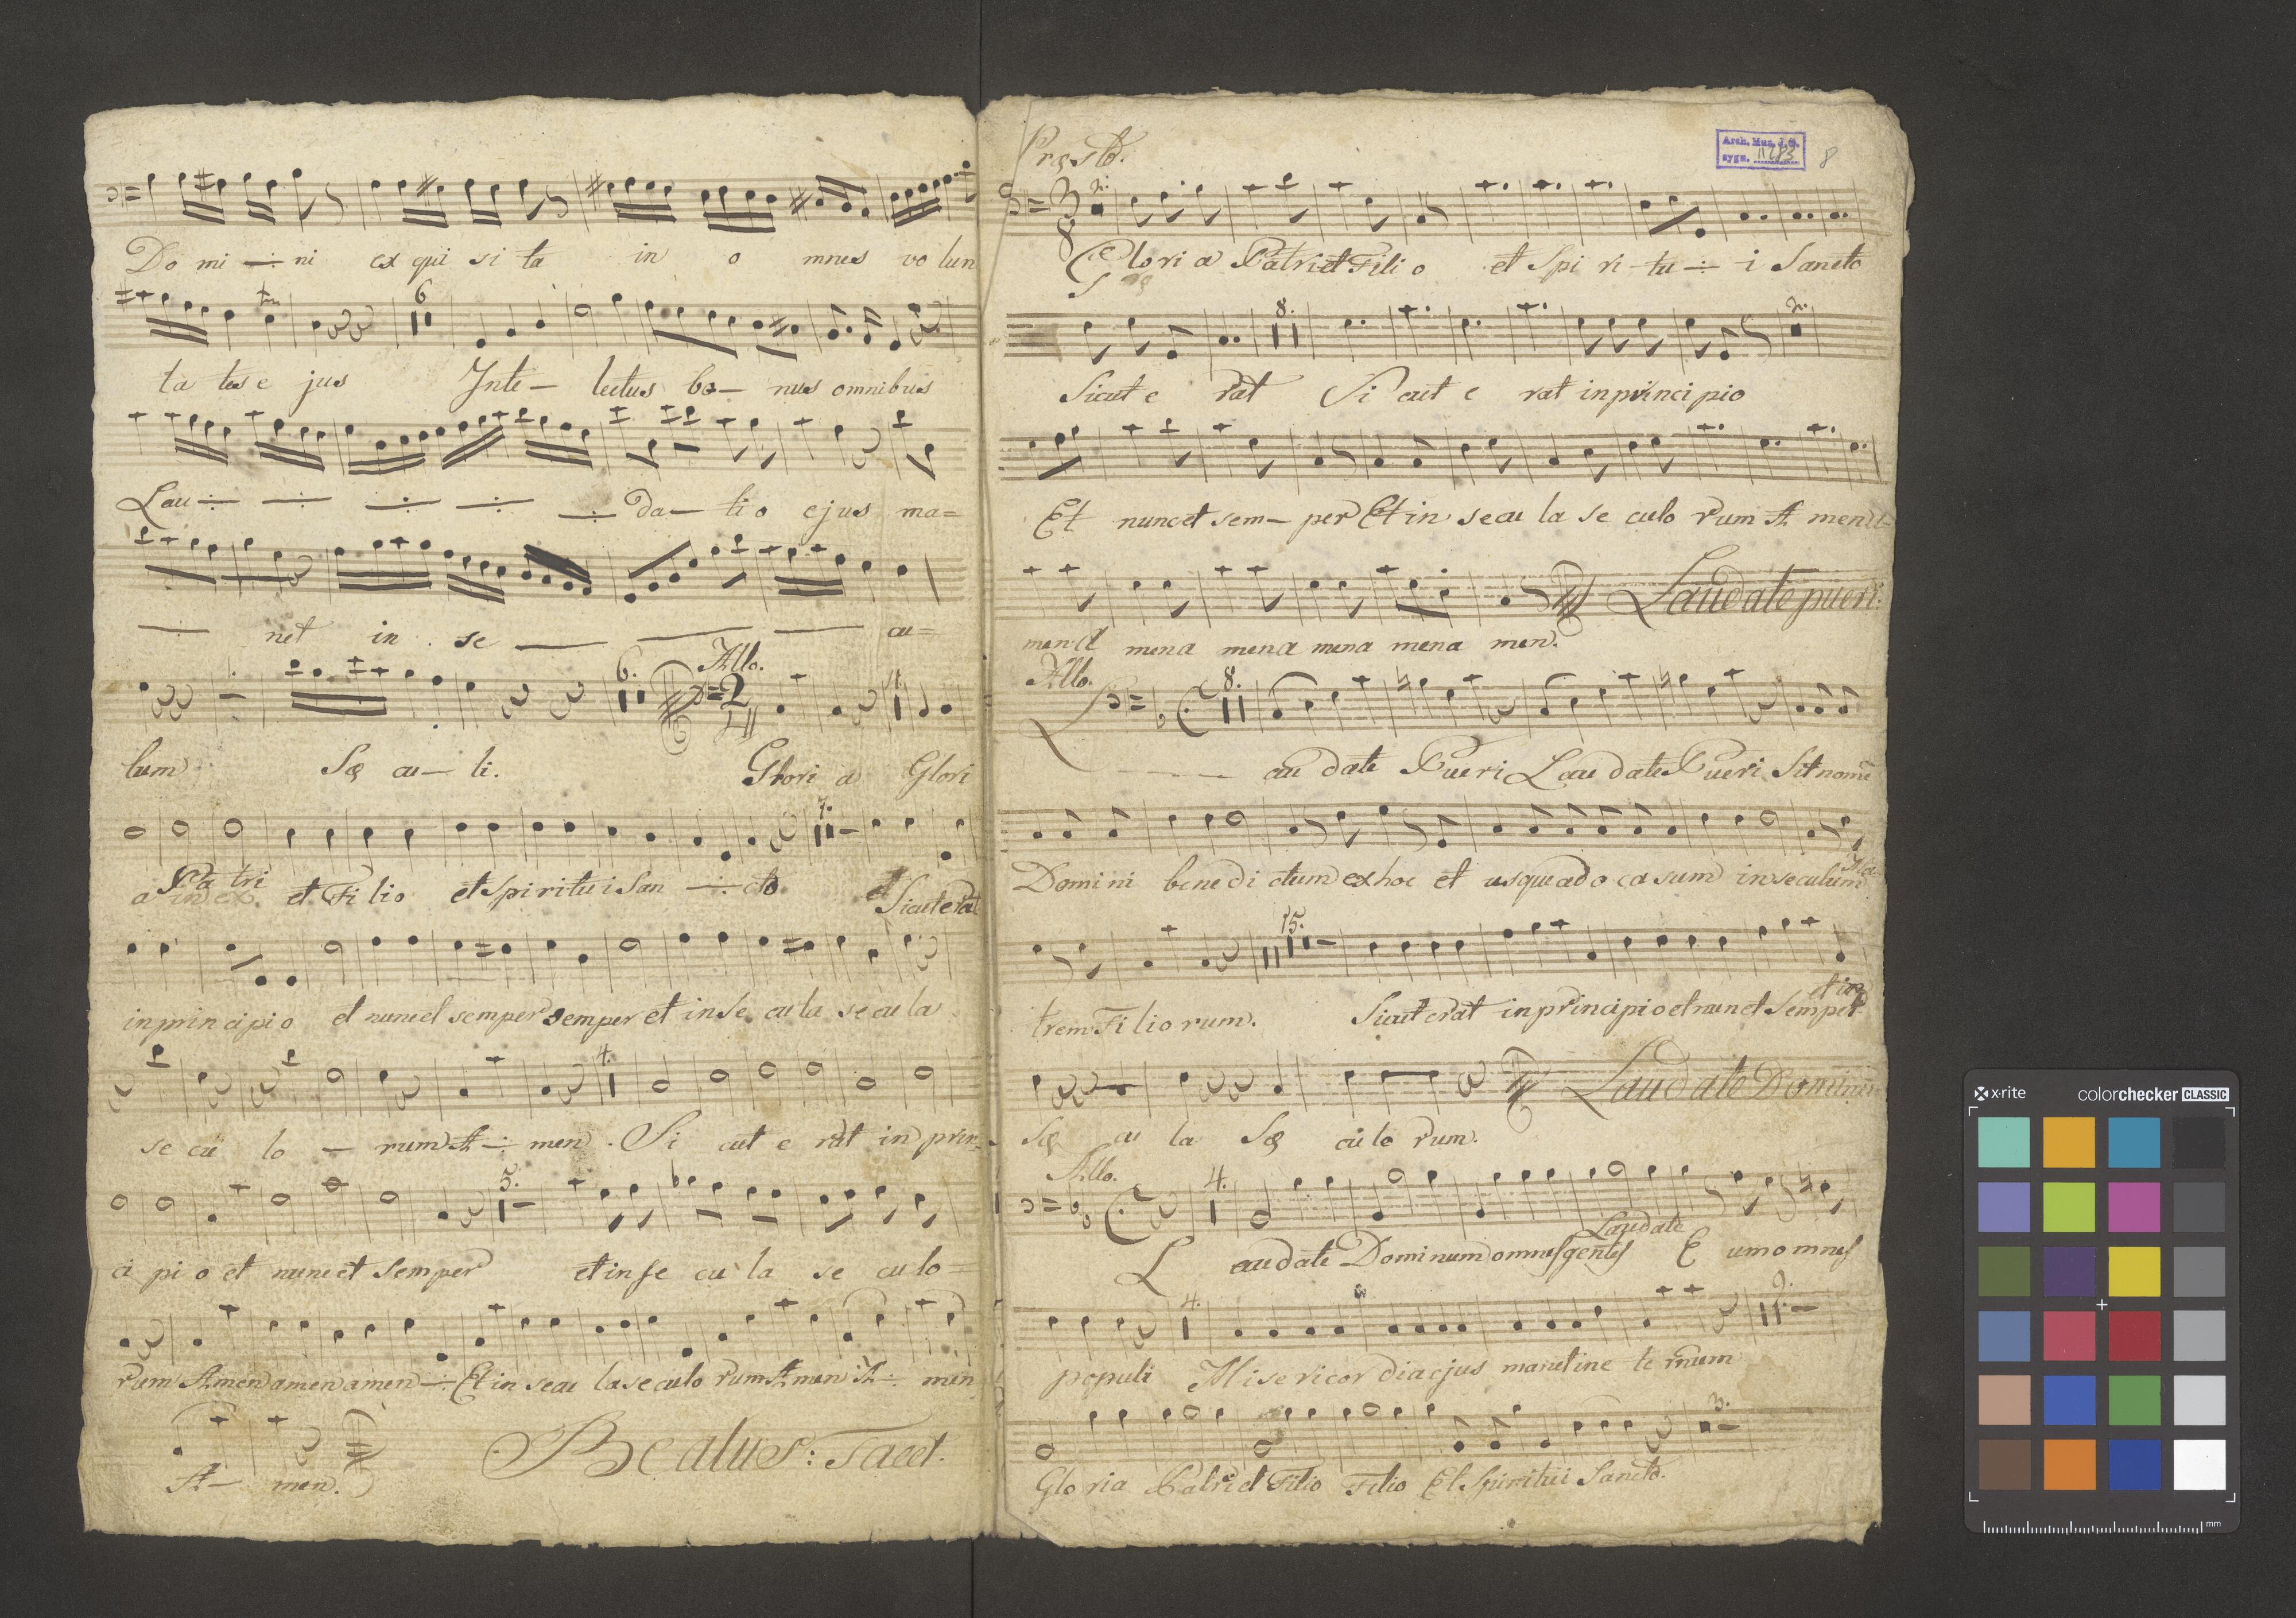 Do mi -:- ni ex qui si ta in o mnes vo lun
6
ta tes e jus Inte- lectus bo- nus omnibus
Lau -:- -:- -:- -:- -:- da- ti o ejus ma=
-:- net in se cu=
6. Allo. 2
lum Sę cu- li. Glori a Glori
7.
a Pa tri et Fi lio et Spi ritu i San -:- cto et Sicut erat
in prin cipi o et nunc et semper semper et in Se cu la se cu la
4.
se cu lo - rum A -:- men. Si cut e rat in prin-
5.
ci pi o et nunc et Semper et in se cu la se cu lo=
rum Amen amen amen -:- Et in secu la se culo rum A men A -:- men
A- men.
Beatus: Tacet.
Presto.
Arch. Mus. J. G.
sygn. 11283
8
3 8 2.
Glori a Patri et Filio et Spi ri- tu -:- i Sancto
8. 2.
Sicut e rat Si cut e rat in princi pio
Et nunc et sem- per Et in secu la se culo rum A men a-
men a mena mena mena mena men.
Laudate pueri:
Allo.
8.
L - - - au date Pueri Lau date Pueri Sit nomē
Domini bene di ctum ex hoc et usque ad o ca sum in seculum
15.
trem Fi lio rum. Sicut erat in principio et nun et Semper et in
Sę cu la Sę cu lo rum.
Laudate Dominum
Allo.
4.
Laudate
L audate Dominum omnes gentes E um omnes
4. 9.
populi Misericordia ejus manet in e ternum
3.
Glo ria Patri et Filio Filio Et Spiritui Sancto.
x-rite
colorchecker CLASSIC
mm